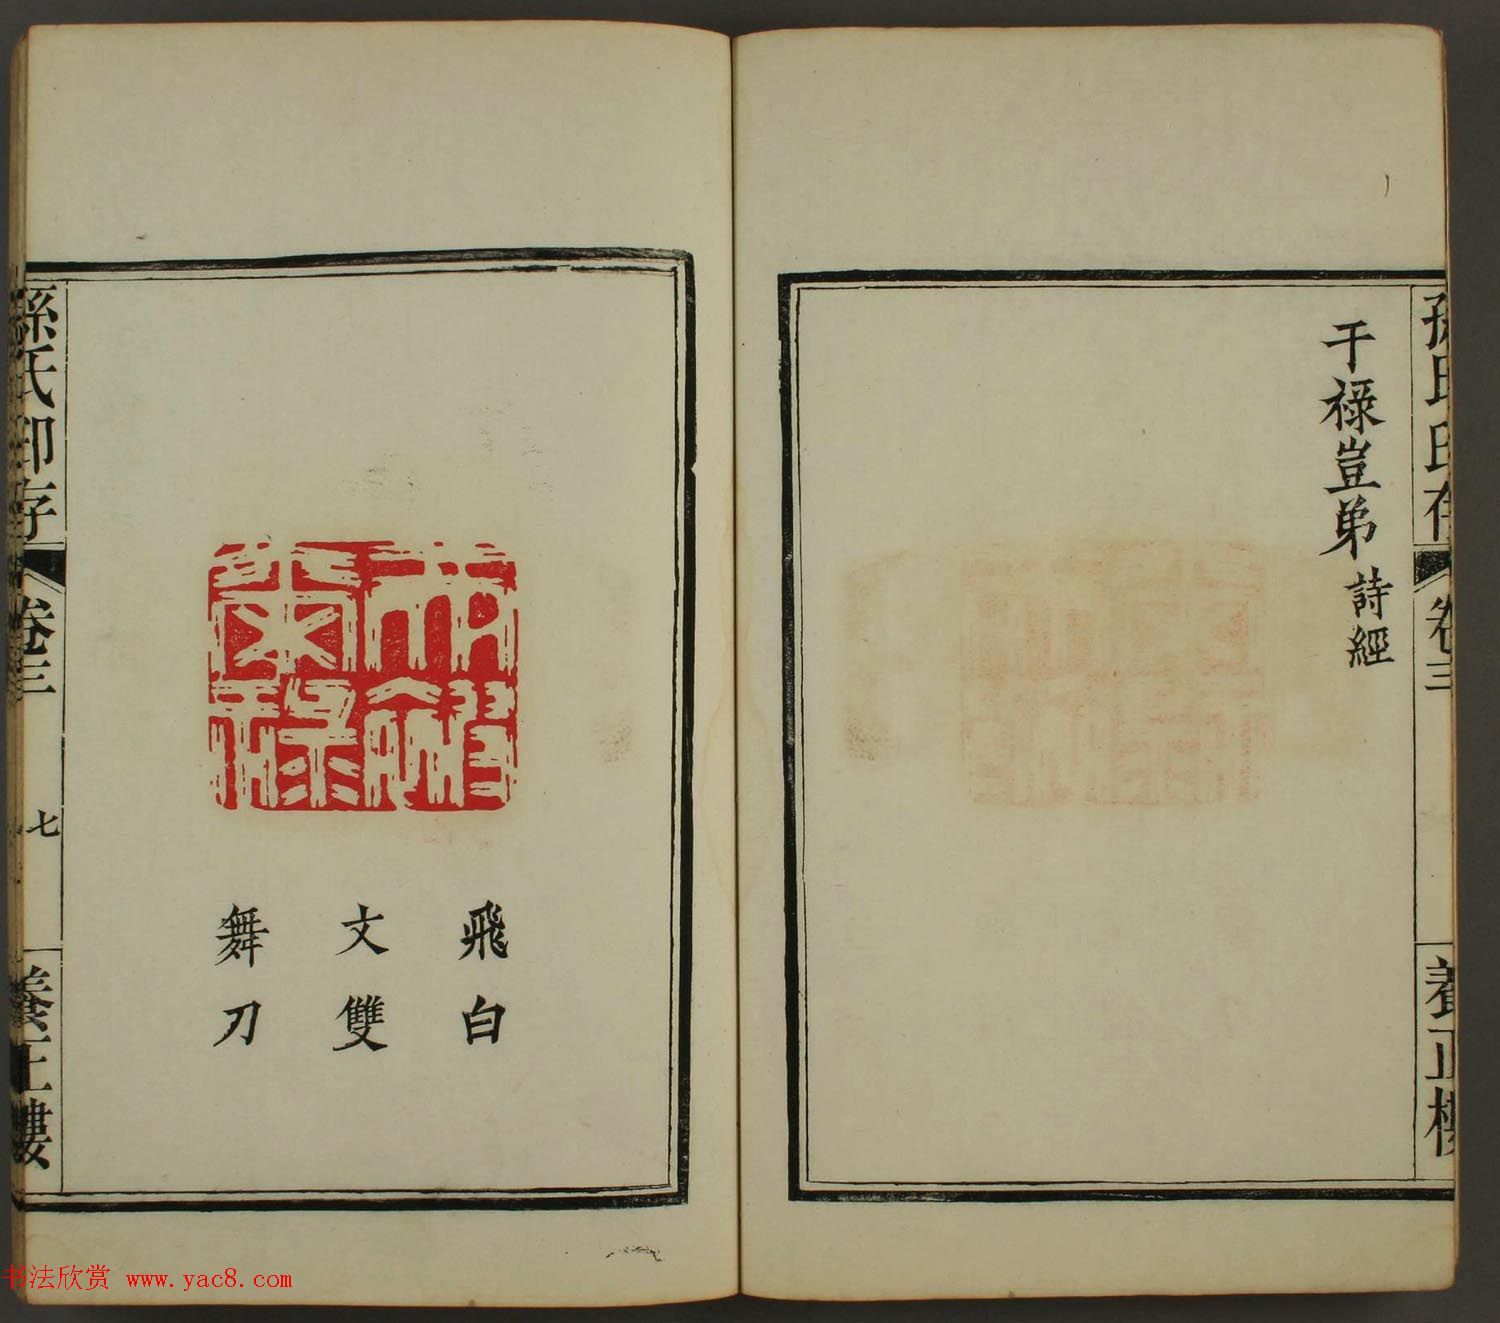 孫氏印存
卷三
養正樓
干祿豈弟
詩經
飛白
文雙
舞刀
孫氏印存
卷三
七
養正樓
书法欣赏 www.yac8.com